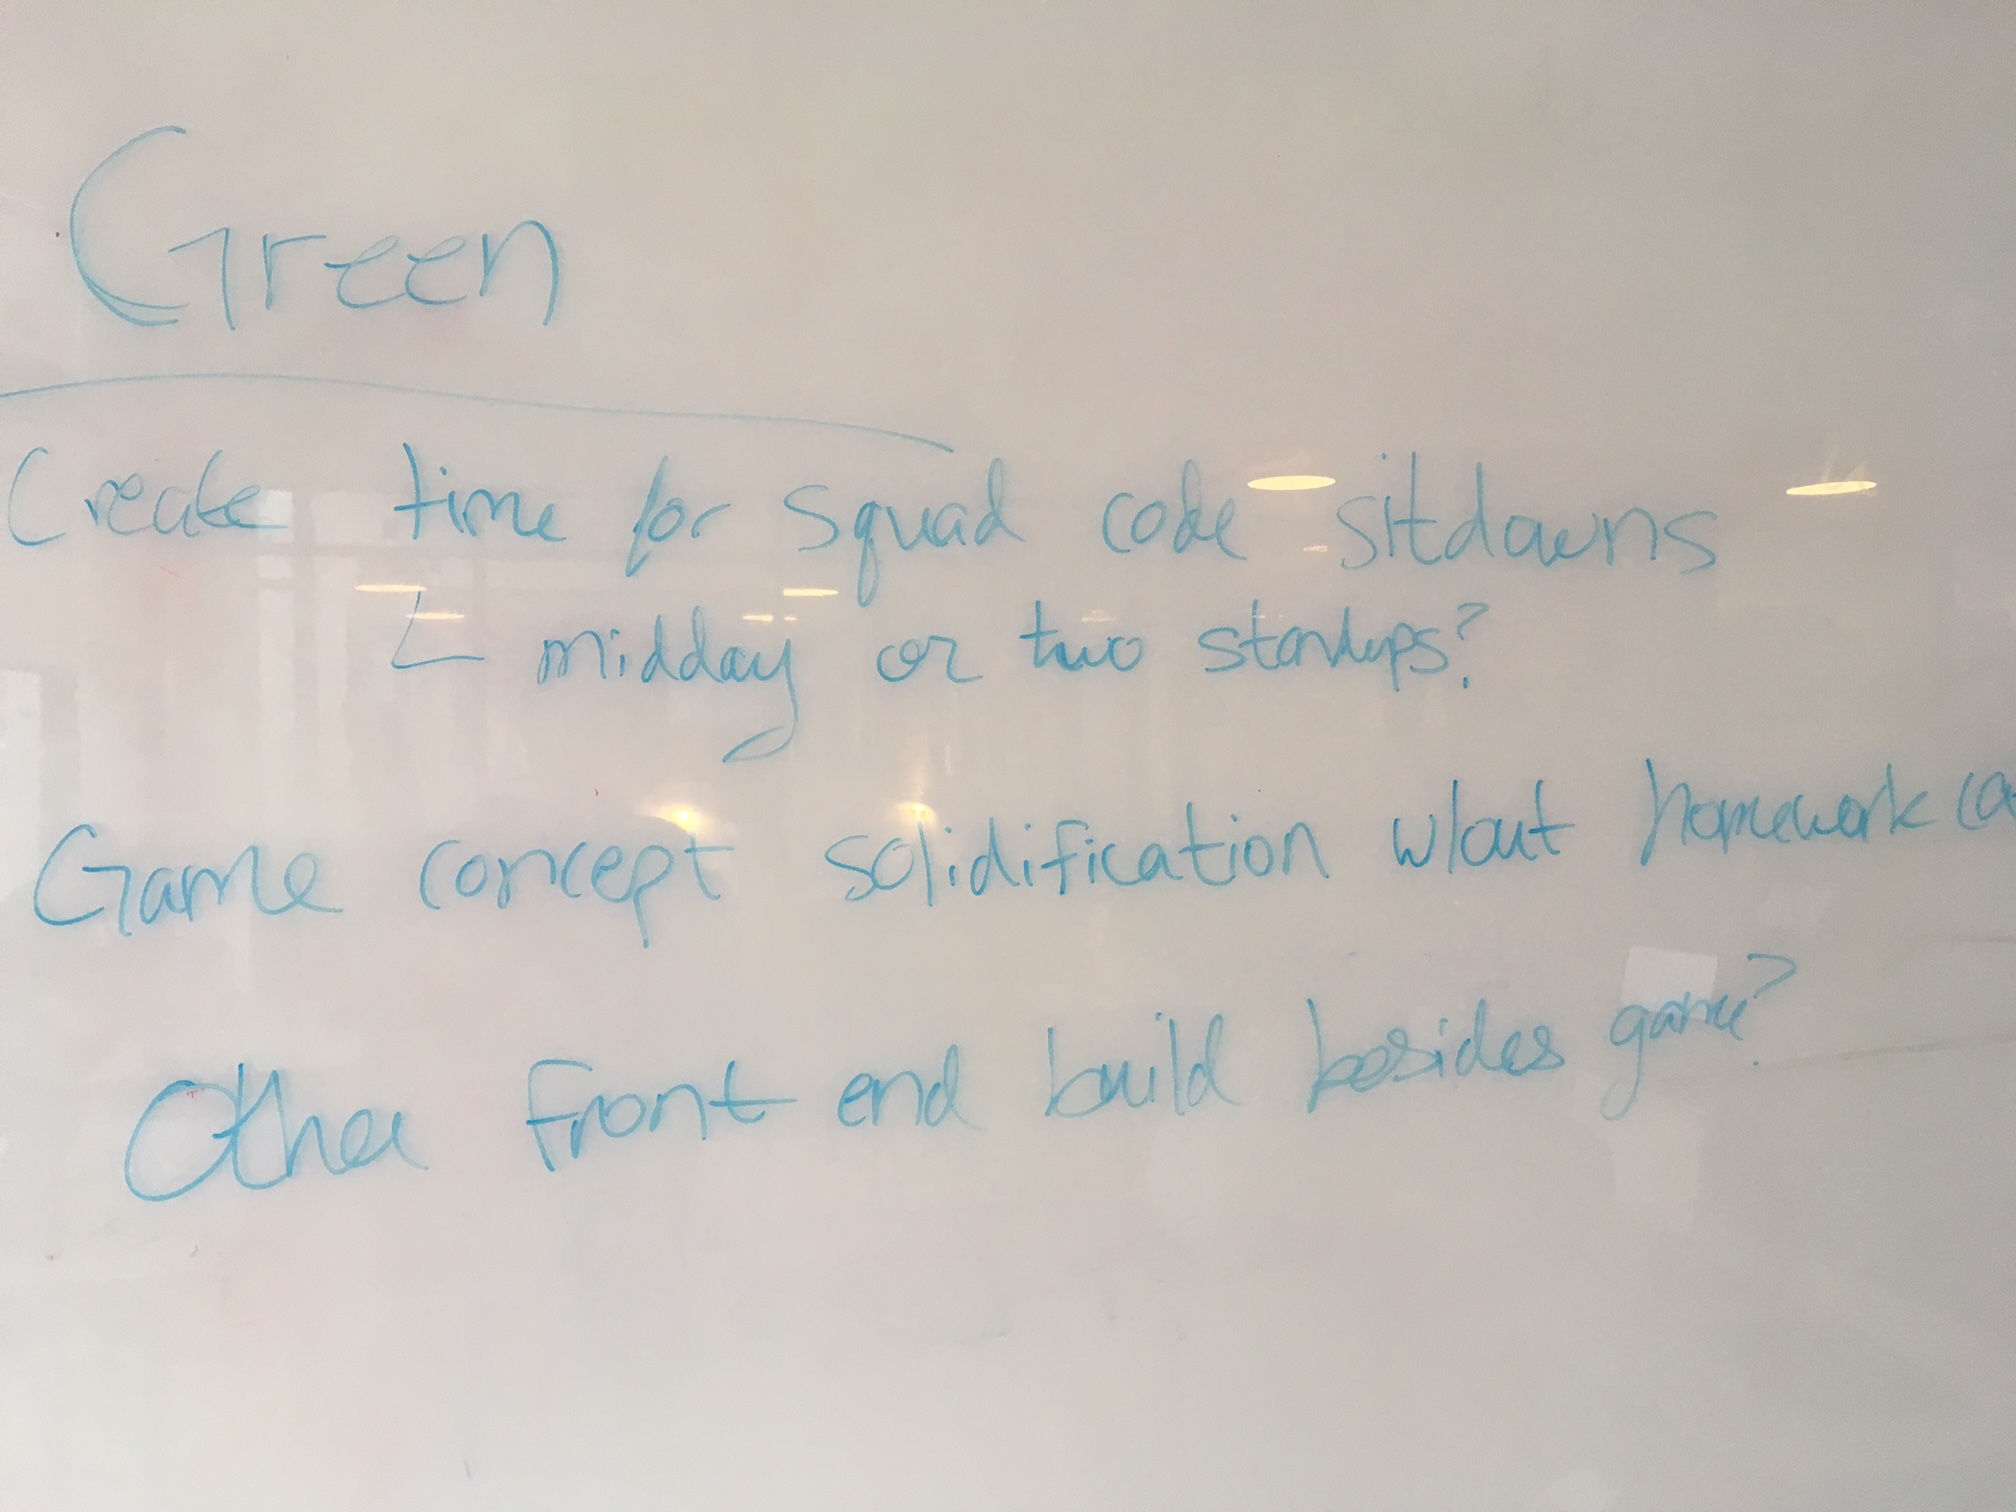 Green
Create time for squad code sitdowns
midday or two standups?
Game concept solidification w/out homework
Other front end build besides game?